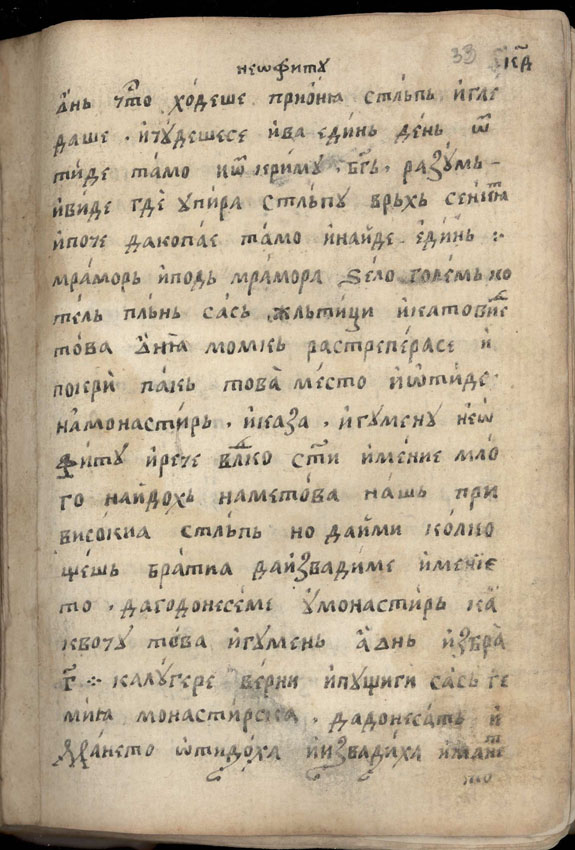 неѡфиту
33 к҃д
днь что ходеше прионїа стльпь и гле
даше · и чудешесе и ва единь день ѿ
тиде тамо иѿкриму · бг҃ь · разумь ·
и виде где упира стльпу врьхь сен
и поче да копае тамо и найде единь :·
мраморь и подь мрамора ѕело големь ко
тель пльнь сась жльтици и като виде
това момкь растреперасе и
покри пакь това место и ѿтиде
на монастирь · и каза · игумену неѡ
фиту и рече влⷣко ст҃и имение мло
го найдохь на метова нашь при
високиа стльпь но дайми колко
щешь братиа да извадиме имение
то · да го донесеме у монастирь ка
кво чу това игумень а днь избра
г҃ :· калугере верни и пуши ги сась ге
мию монастирска · да донесать и
мането ѿтидоха и извадиха имане
то